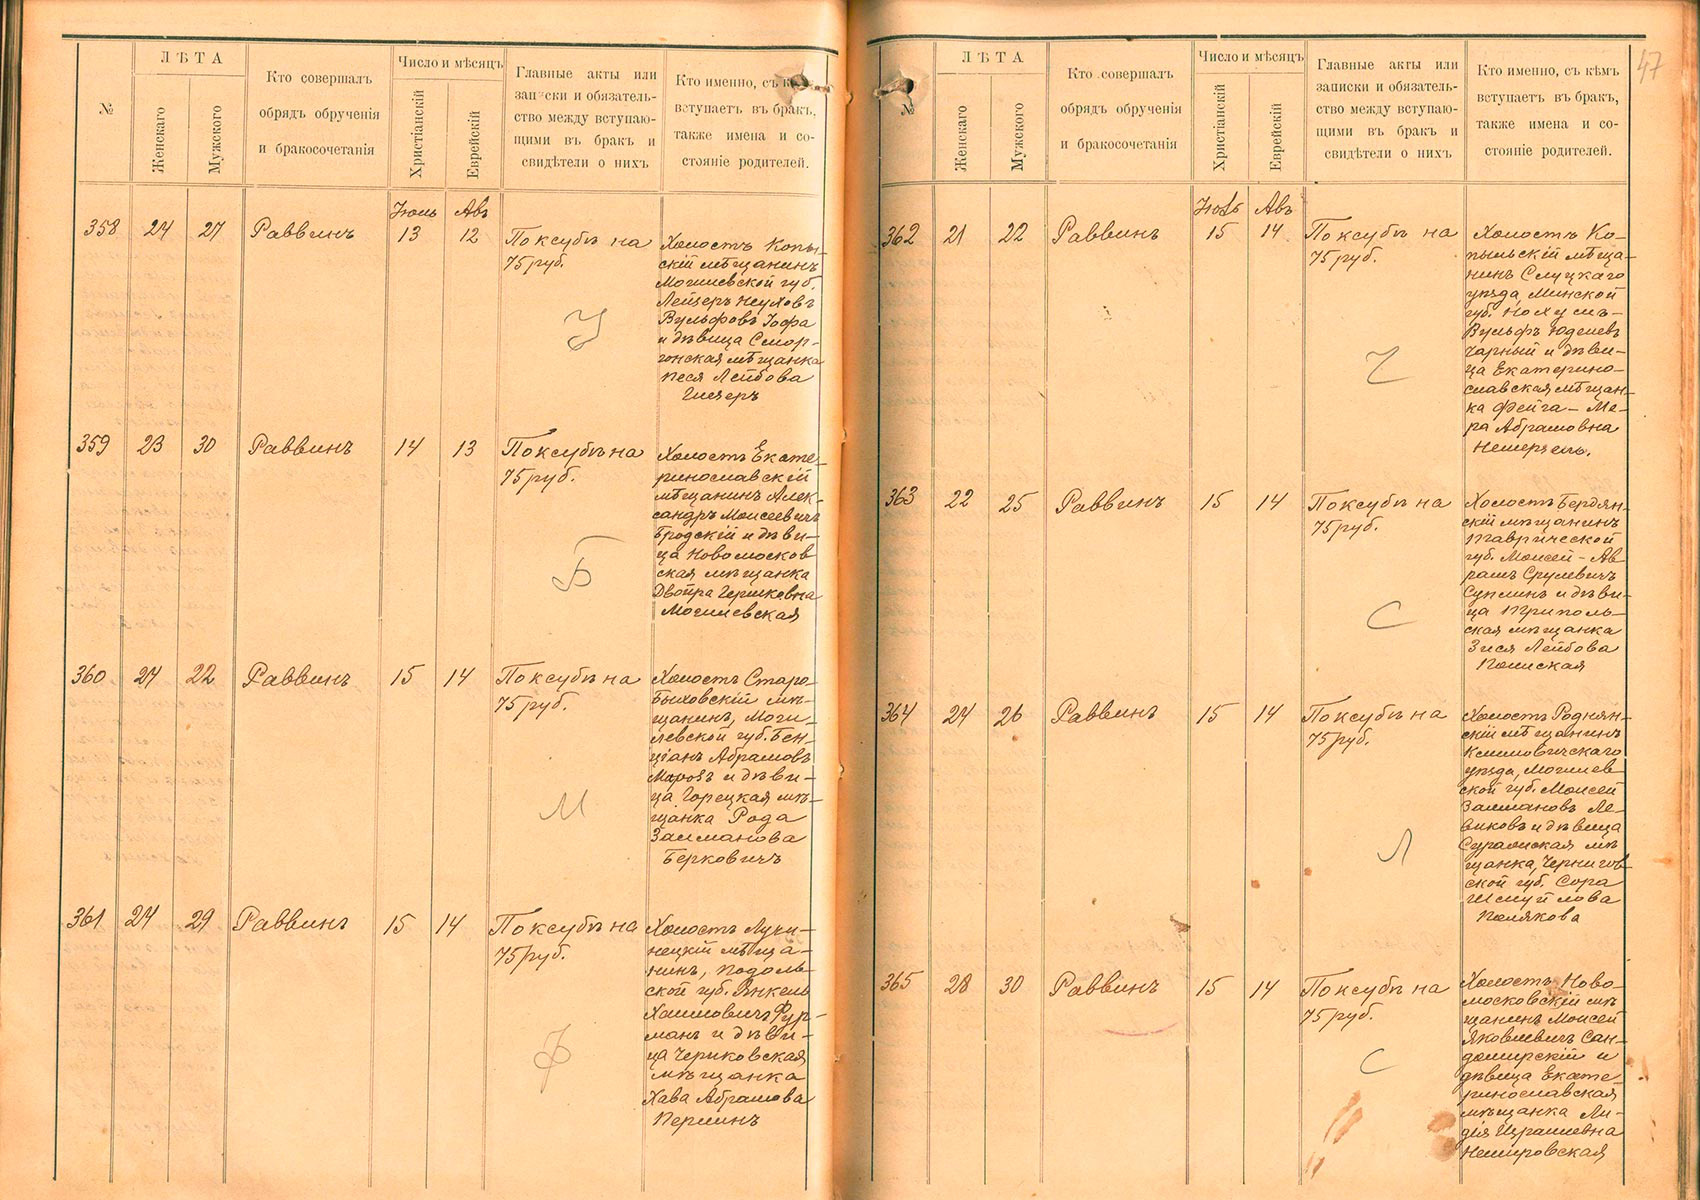 ЛѢТА
Число и мѣсяцъ
№
Женскаго
Мужского
Кто совершалъ
обрядъ обрученія
и бракосочетанія
Христіанскій
Еврейскій
Главные акты или
записки и обязатель-
ство между вступаю-
щими въ бракъ и
свидѣтели о нихъ
Кто именно, съ кѣмъ
вступаетъ въ бракъ,
также имена и со-
стояніе родителей.
Іюль Авъ
358 24 27 Раввинъ 13 12 По ксубѣ на
75 руб.
Холостъ Копы-
скій мѣщанинъ
Могилевской губ.
Лейзеръ
Вульфовъ Іофа
и дѣвица Смор-
гонская мѣщанка
Песя Лейбова
У
359 23 30 Раввинъ 14 13 По ксубѣ на
75 руб.
Холостъ Екате-
ринославскій
мѣщанинъ Алек-
сандръ Моисеевичъ
Бродскій и дѣви-
ца Новомосков
ская мѣщанка
Двойра Гершковна
Могилевская
Б
360 24 22 Раввинъ 15 14 По ксубѣ на
75 руб.
Холостъ Старо-
Быховскій мѣ-
щанинъ, Моги-
левской губ. Бен-
ціанъ Абрамовъ
и дѣви-
ца Горецкая мѣ-
щанка Рода
Залманова
Берковичъ
М
361 24 29 Раввинъ 15 14 По ксубѣ на
75 руб.
Холостъ Лучи-
нецкій мѣща-
нинъ, Подоль-
ской губ. Янкель
Хаимовичъ Фур-
манъ и дѣви-
ца Чериковская
мѣщанка
Хава Абрамова
Перлинъ
Ф
47
ЛѢТА
Число и мѣсяцъ
№
Женскаго
Мужского
Кто совершалъ
обрядъ обрученія
и бракосочетанія
Христіанскій
Еврейскій
Главные акты или
записки и обязатель-
ство между вступаю-
щими въ бракъ и
свидѣтели о нихъ
Кто именно, съ кѣмъ
вступаетъ въ бракъ,
также имена и со-
стояніе родителей.
Іюль Авъ
362 21 22 Раввинъ 15 14 По ксубѣ на
75 руб.
Холостъ Ко-
пыльскій мѣща-
нинъ Слуцкаго
уѣзда, Минской
губ. Нохумъ-
Вульфъ Юделевъ
Чарный и дѣви-
ца Екатерино-
славская мѣщан-
ка Фейга-Ме-
ра Абрамовна
Ч
363 22 25 Раввинъ 15 14 По ксубѣ на
75 руб.
Холостъ Бердян-
скій мѣщанинъ
Таврической
губ. Моисей-Ав-
рамъ Срулевичъ
Суплинъ и дѣви-
ца Триполь-
ская мѣщанка
Зися Лейбова
С
364 24 26 Раввинъ 15 14 По ксубѣ на
75 руб.
Холостъ Роднян-
скій мѣщанинъ
Климовичскаго
уѣзда, Могилев
ской губ. Моисей
Залмановъ Ле-
виковъ и дѣвица
Суражская мѣ
щанка, Чернигов-
ской губ. Сора
Шмуйлова
Полякова
Л
365 28 30 Раввинъ 15 14 По ксубѣ на
75 руб.
Холостъ Ново-
московскій мѣ
щанинъ Моисей
Яковлевичъ Сан-
домирскій и
дѣвица Екате-
ринославская
мѣщанка Ли-
дія Израилевна
Немировская
С